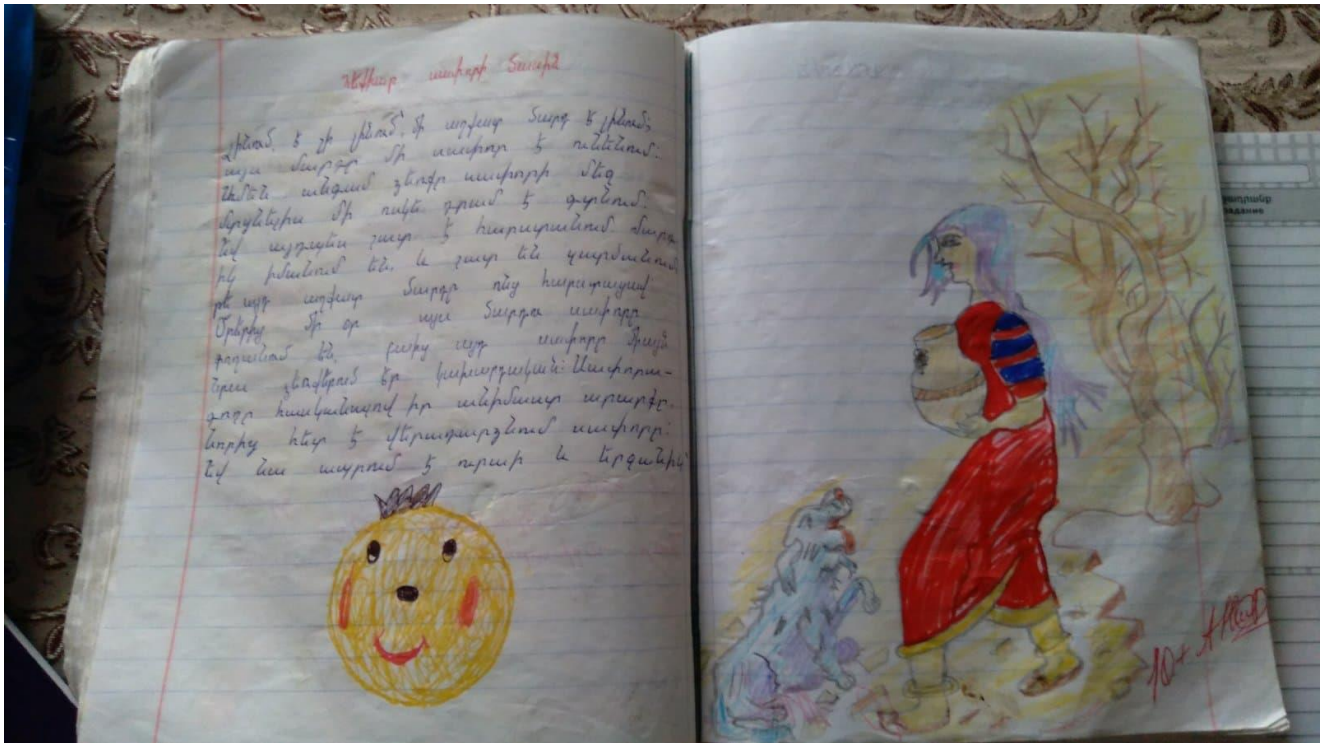 Հեքիաթ սափորի մասին
Լինում, է չի լինում՝ մի աղքատ մարդ է լինում;
այս մարդը մի սափոր է ունենում:
Ամեն անգամ ձեռքը սափորի մեջ
մի ոսկե դրամ է գտնում.
Եվ այդպես շատ է հարստանում մարդ
իկ իմանում են, և շատ են զարմանում,
թե այդ աղքատ մարդը ոնց հարստացավ
Օրերից մի օր այս մարդու սափորը
գողանում են, բայց այդ սափորը միայն
նրա ձեռքերում էր կախարդական: Սափորա-
գողը հասկանալով իր անիմաստ արարքը.
նորից հետ է վերադարձնում սափորը:
Եվ նա ապրում է ուրախ և երջանիկ
10+
ադրանք
адание